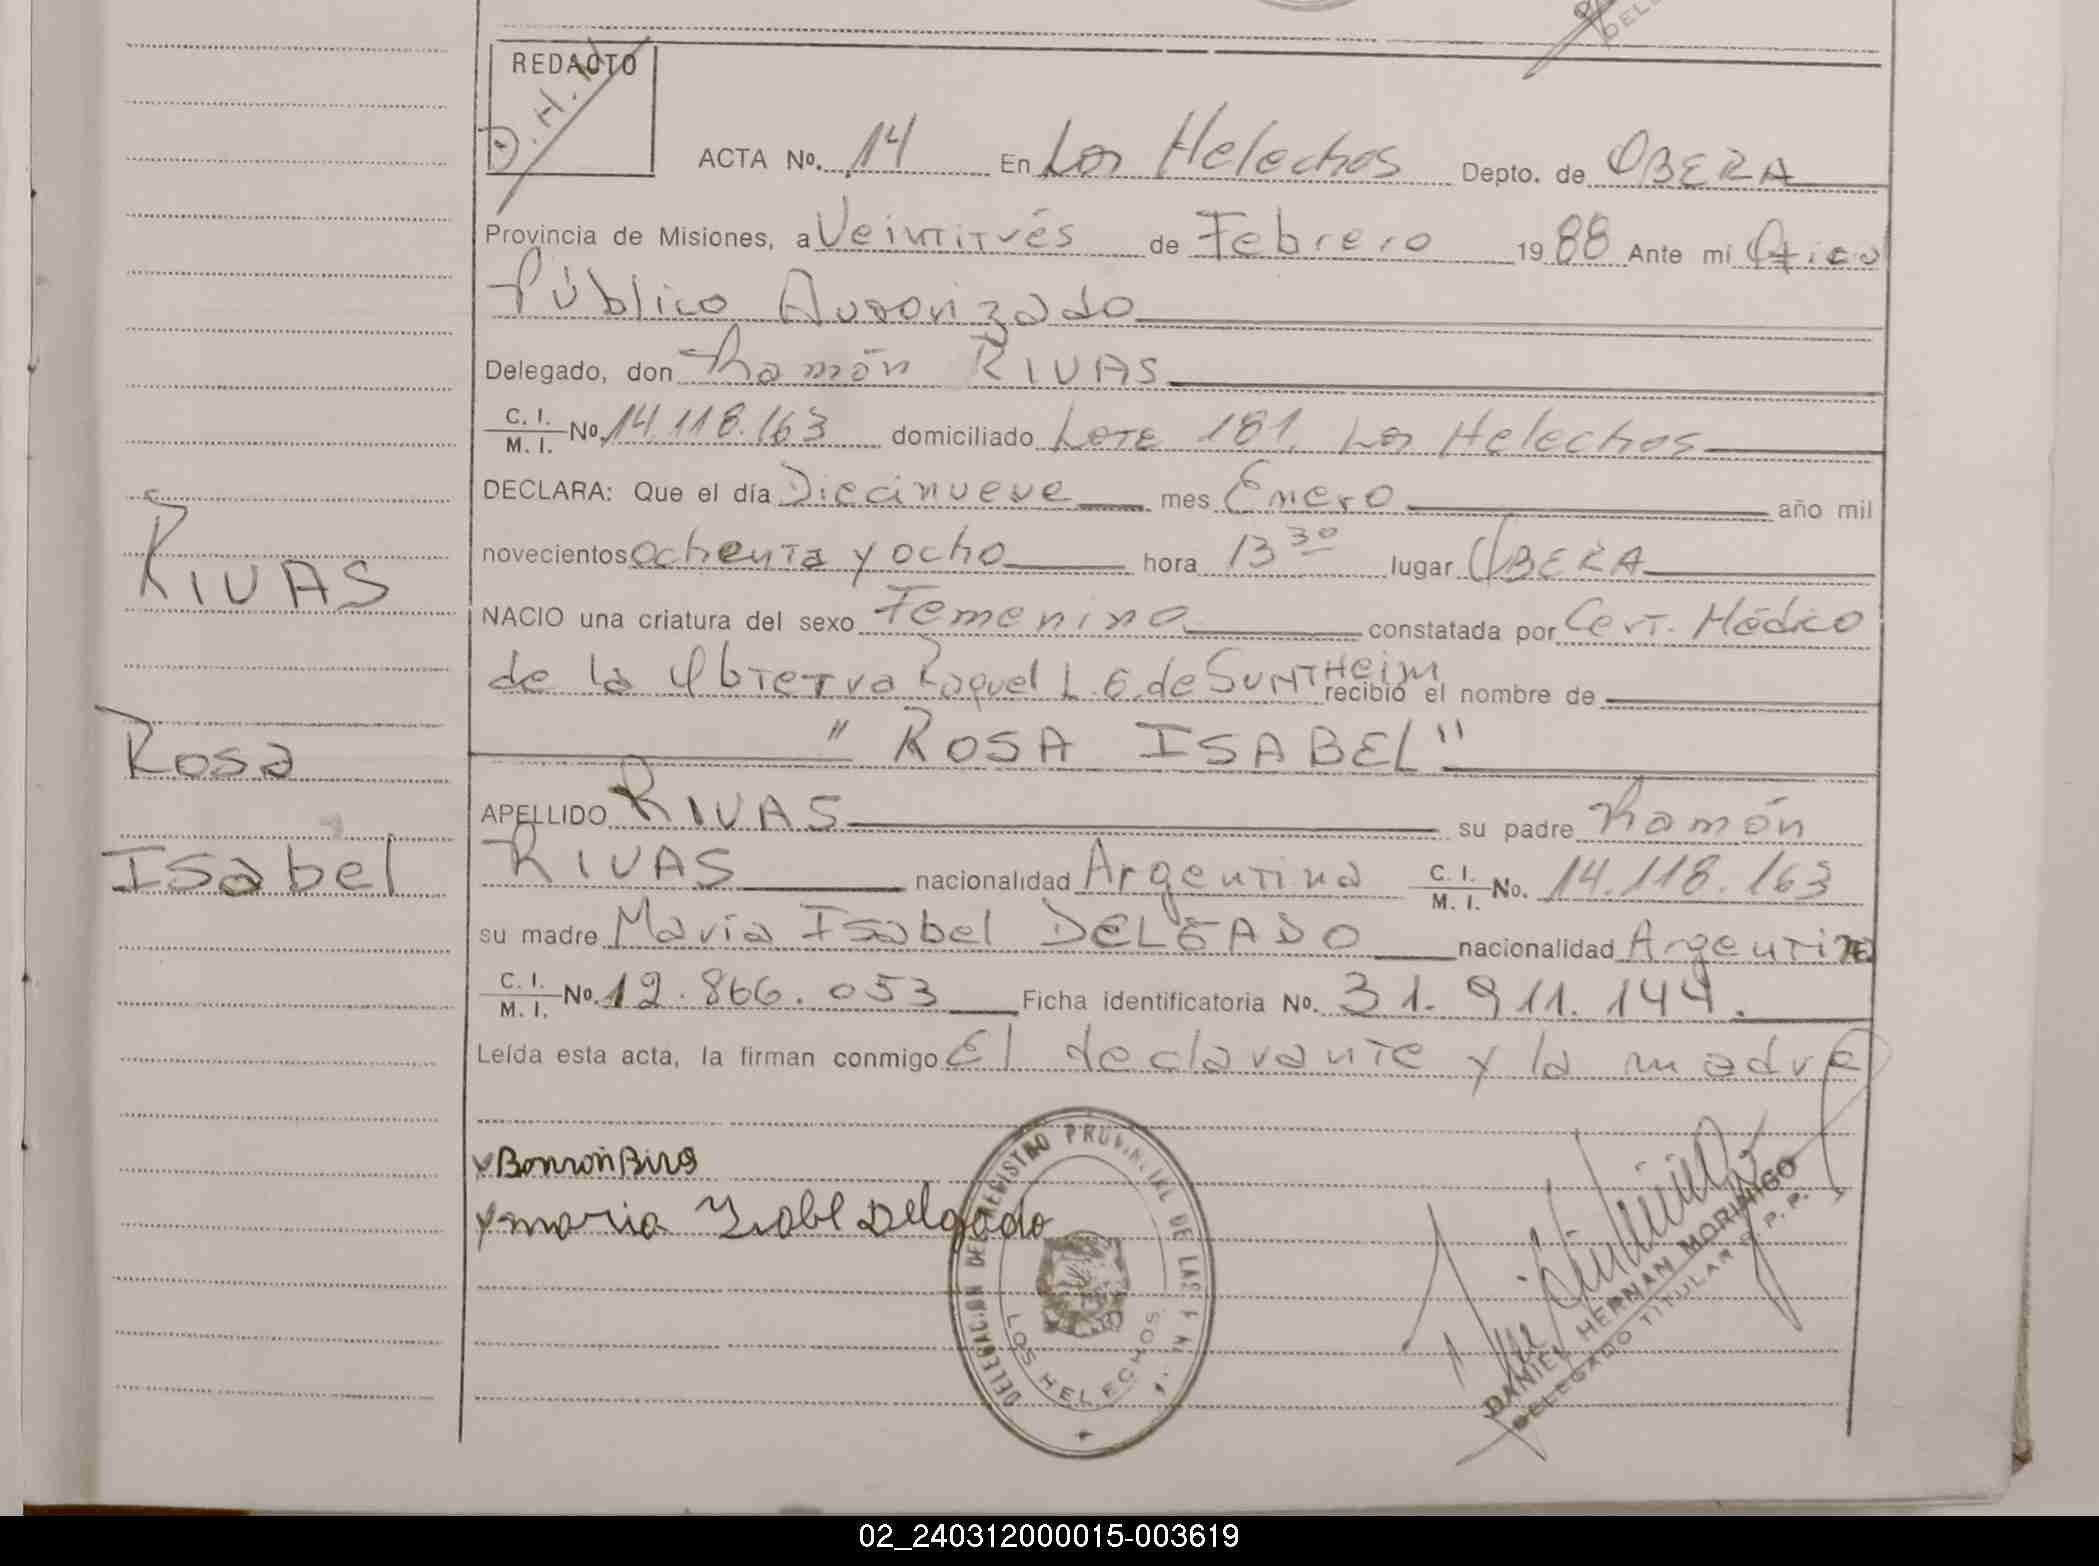 REDACTO
D.H.M
ACTA No. 14 En Los Helechos Depto. de OBERA
Provincia de Misiones, a Veintitrés de Febrero 1988 Ante mi
Público Autorizado
Delegado, don Ramón RIVAS
C. I. M. I. No. 14.118.163 domiciliado Lote 181. Los Helechos
DECLARA: Que el día Diecinueve mes Enero año mil
novecientos ochenta y ocho hora 13 30 lugar OBERA
NACIO una criatura del sexo Femenino constatada por Cert. Médico
de la Obstetra Raquel L. E. de SUNTHEIM recibió el nombre de
" ROSA ISABEL "
APELLIDO RIVAS su padre Ramón
RIVAS nacionalidad Argentina C. I. M. I. No. 14.118.163
su madre María Isabel DELGADO nacionalidad Argentina
C. I. M. I. No. 12.866.053 Ficha identificatoria No. 31.911.144.
Leída esta acta, la firman conmigo El declarante y la madre
RIVAS
Rosa
Isabel
maria Isabel Delgado
DELEGACION DEL REGISTRO PROVINCIAL DE LAS P.
LOS HELECHOS
DANIEL HERNAN MORINIGO
DELEGADO TITULAR R. P. P.
02_240312000015-003619